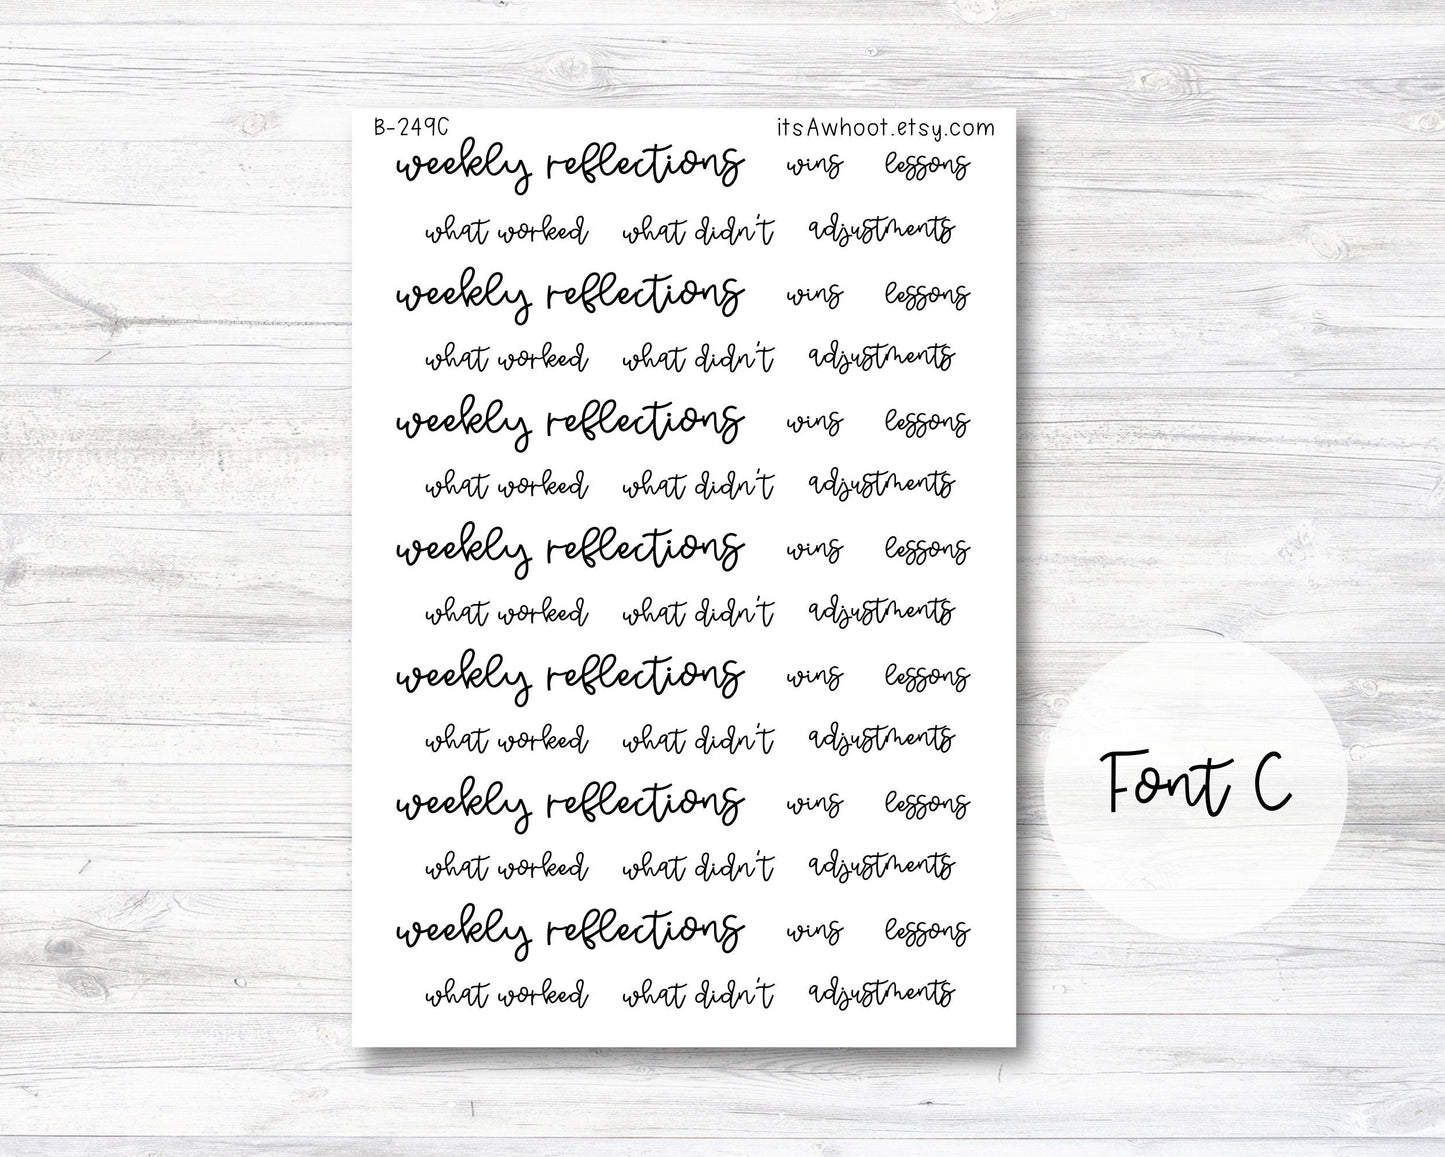 B-249C itsAwhoot.etsy.com
weekly reflections wins lessons
what worked what didn't adjustments
weekly reflections wins lessons
what worked what didn't adjustments
weekly reflections wins lessons
what worked what didn't adjustments
weekly reflections wins lessons
what worked what didn't adjustments
weekly reflections wins lessons
what worked what didn't adjustments
weekly reflections wins lessons
what worked what didn't adjustments
weekly reflections wins lessons
what worked what didn't adjustments
Font C